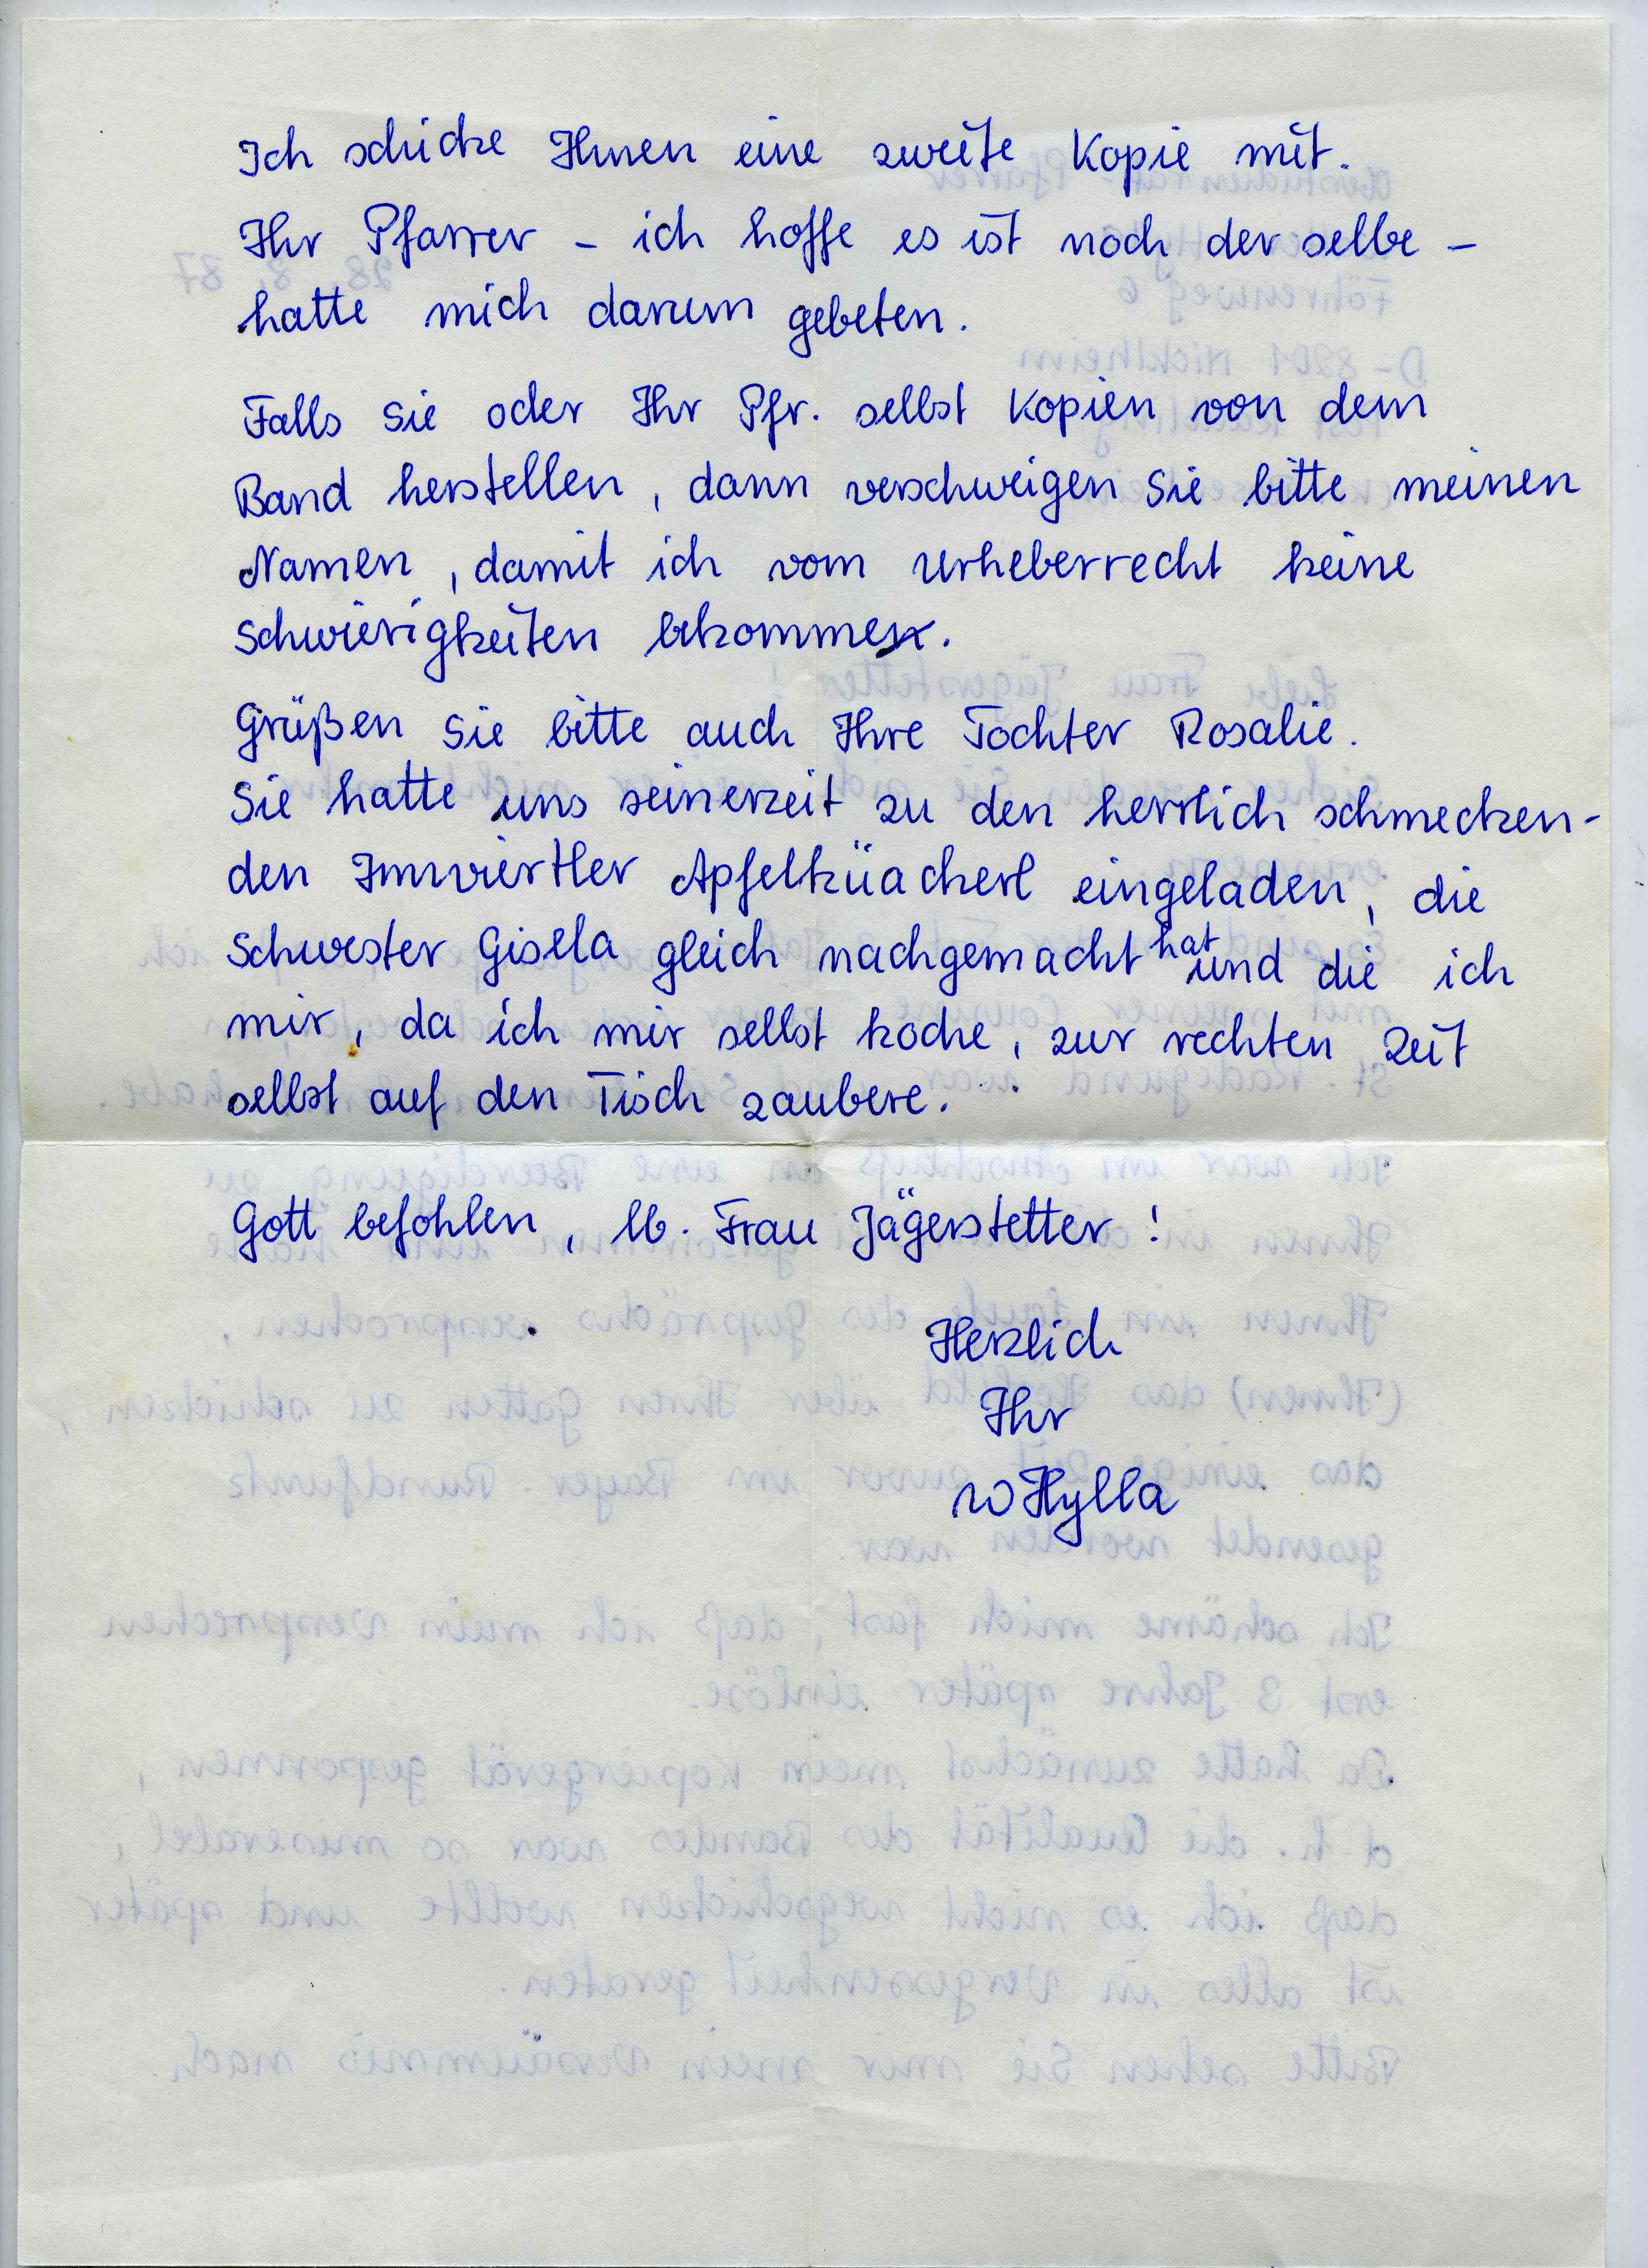 Ich schicke Ihnen eine zweite Kopie mit.
Ihr Pfarrer – ich hoffe es ist noch der selbe –
hatte mich darum gebeten.
Falls Sie oder Ihr Pfr. selbst Kopien von dem
Band herstellen, dann verschweigen Sie bitte meinen
Namen, damit ich vom Urheberrecht keine
Schwierigkeiten bekomme.
Grüßen Sie bitte auch Ihre Tochter Rosalie.
Sie hatte uns seinerzeit zu den herrlich schmecken-
den Innviertler Apfelküacherl eingeladen, die
Schwester Gisela gleich nachgemacht hat und die ich
mir, da ich mir selbst koche, zur rechten Zeit
selbst auf den Tisch zaubere.
Gott befohlen, lb. Frau Jägerstetter!
Herzlich
Ihr
W Hylla